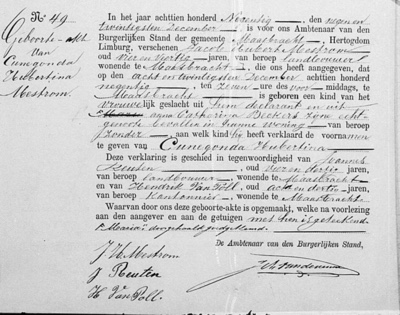 No 49
Geboorte-akte
van
Cunegonda
Hubertina
Mestrom.
In het jaar achttien honderd Negentig, den negen en
twintigsten December, is voor ons Ambtenaar van den
Burgerlijken Stand, der gemeente Maasbracht, Hertogdom
Limburg, verschenen Jacob Hubert Mestrom
oud vier en veertig jaren, van beroep landbouwer
wonende te Maasbracht, die ons heeft aangegeven, dat
op den acht en twintigsten December achttien honderd
negentig, ten zeven ure des voor middags, te
Maasbracht is geboren een kind van het
vrouwelijk geslacht uit hem declarant en uit
Anna Catharina Beckers zijne echt-
genoote bevallen in hunne woning van beroep
zonder, aan welk kind hij heeft verklaard de voornamen
te geven van Cunegonda Hubertina
Deze verklaring is geschied in tegenwoordigheid van Joannes
Reuten, oud vier en dertig jaren,
van beroep landbouwer, wonende te Maasbracht
en van Hendrik Van Poll, oud acht en dertig jaren,
van beroep Kantonnier, wonende te Maasbracht
Waarvan door ons deze geboorte-akte is opgemaakt, welke na voorlezing
aan den aangever en aan de getuigen met hen is geteekend
"Maria" doorgehaald goedgekeurd.
De Ambtenaar van den Burgerlijken Stand,
J H Mestrom
J Reuten
H Van Poll.